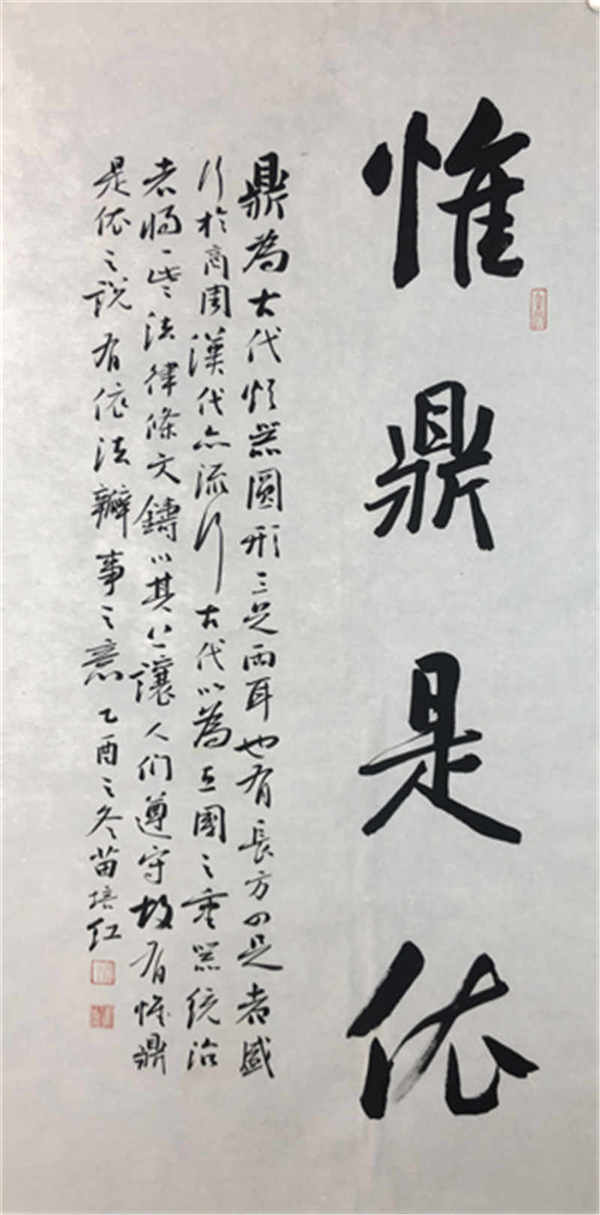 惟鼎是依
鼎為古代炊器圓形三足兩耳也有長方四足者盛
行於商周漢代亦流行古代以為立國之重器統治
者將一些法律條文鑄以其上讓人们遵守故有惟鼎
是依之說有依法辦事之意乙酉之冬苗培红